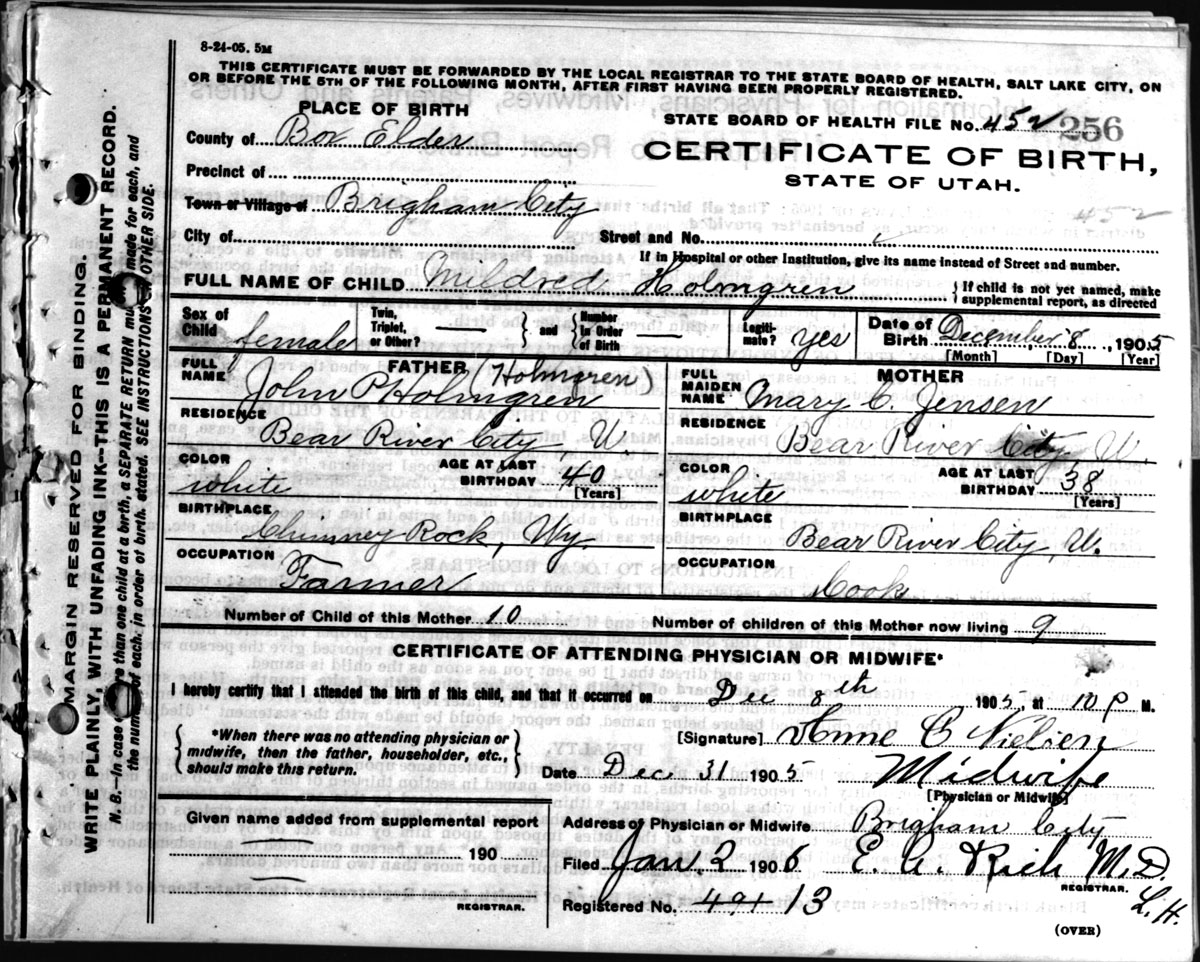 8-24-05. 5M
THIS CERTIFICATE MUST BE FORWARDED BY THE LOCAL REGISTRAR TO THE STATE BOARD OF HEALTH, SALT LAKE CITY, ON
OR BEFORE THE 5TH OF THE FOLLOWING MONTH, AFTER FIRST HAVING BEEN PROPERLY REGISTERED.
PLACE OF BIRTH
STATE BOARD OF HEALTH FILE No. 452 256
County of Box Elder
CERTIFICATE OF BIRTH,
STATE OF UTAH.
Precinct of
452
Town or Village of Brigham City
City of
Street and No.
If in Hospital or other Institution, give its name instead of Street and number.
FULL NAME OF CHILD Mildred Holmgren { If child is not yet named, make
supplemental report, as directed
Sex of Child female
Twin, Triplet, or Other? —
} and { Number in Order of Birth —
Legitimate? yes
Date of Birth December 8, 1905
[Month] [Day] [Year]
FULL NAME FATHER
John P Holmgren (Holmgren)
RESIDENCE
Bear River City, U.
COLOR
white
AGE AT LAST BIRTHDAY 40
[Years]
BIRTHPLACE
Chimney Rock, Wy.
OCCUPATION
Farmer
FULL MAIDEN NAME MOTHER
Mary C. Jensen
RESIDENCE
Bear River City, U.
COLOR
white
AGE AT LAST BIRTHDAY 38
[Years]
BIRTHPLACE
Bear River City, U.
OCCUPATION
Cook
Number of Child of this Mother 10 Number of children of this Mother now living 9
CERTIFICATE OF ATTENDING PHYSICIAN OR MIDWIFE*
I hereby certify that I attended the birth of this child, and that it occurred on Dec 8th 1905, at 10 P M.
{ *When there was no attending physician or
midwife, then the father, householder, etc.,
should make this return. }
[Signature] Anne C Nielsen
Date Dec 31 1905 Midwife
[Physician or Midwife]
Given name added from supplemental report
190
REGISTRAR.
Address of Physician or Midwife Brigham City
Filed Jan. 2 1906 E. A. Rich M.D.
REGISTRAR.
L. H.
Registered No. 491 13
(OVER)
MARGIN RESERVED FOR BINDING.
WRITE PLAINLY, WITH UNFADING INK—THIS IS A PERMANENT RECORD.
N. B.—In case of more than one child at a birth, a SEPARATE RETURN must be made for each, and
the number of each, in order of birth, stated. SEE INSTRUCTIONS ON OTHER SIDE.